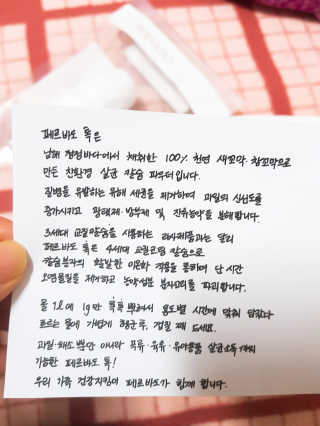 페르바도 톡은
남해 청정바다에서 채취한 100% 천연 새꼬막·참꼬막으로
만든 친환경 살균 칼슘 파우더입니다.
질병을 유발하는 유해 세균을 제거하며 과일의 신선도를
증가시키고 왁태제·방부제 및 잔류농약을 분해합니다.
3세대 교질칼슘을 사용하는 타사제품과는 달리
페르바도 톡은 4세대 칼슘으로
칼슘분자의 활발한 이온화 작용을 통하여 단 시간
오염물질을 제거하고 농약성분 분자고리를 파괴합니다.
물 1L에 1g만 톡톡 뿌려서 용도별 시간에 맞춰 담갔다
흐르는 물에 가볍게 헹군 후, 껍질 째 드세요.
과일·채소 뿐만 아니라 곡류·육류·유아용품 살균소독까지
가능한 페르바도 톡!
우리 가족 건강지킴이 페르바도가 함께 합니다.